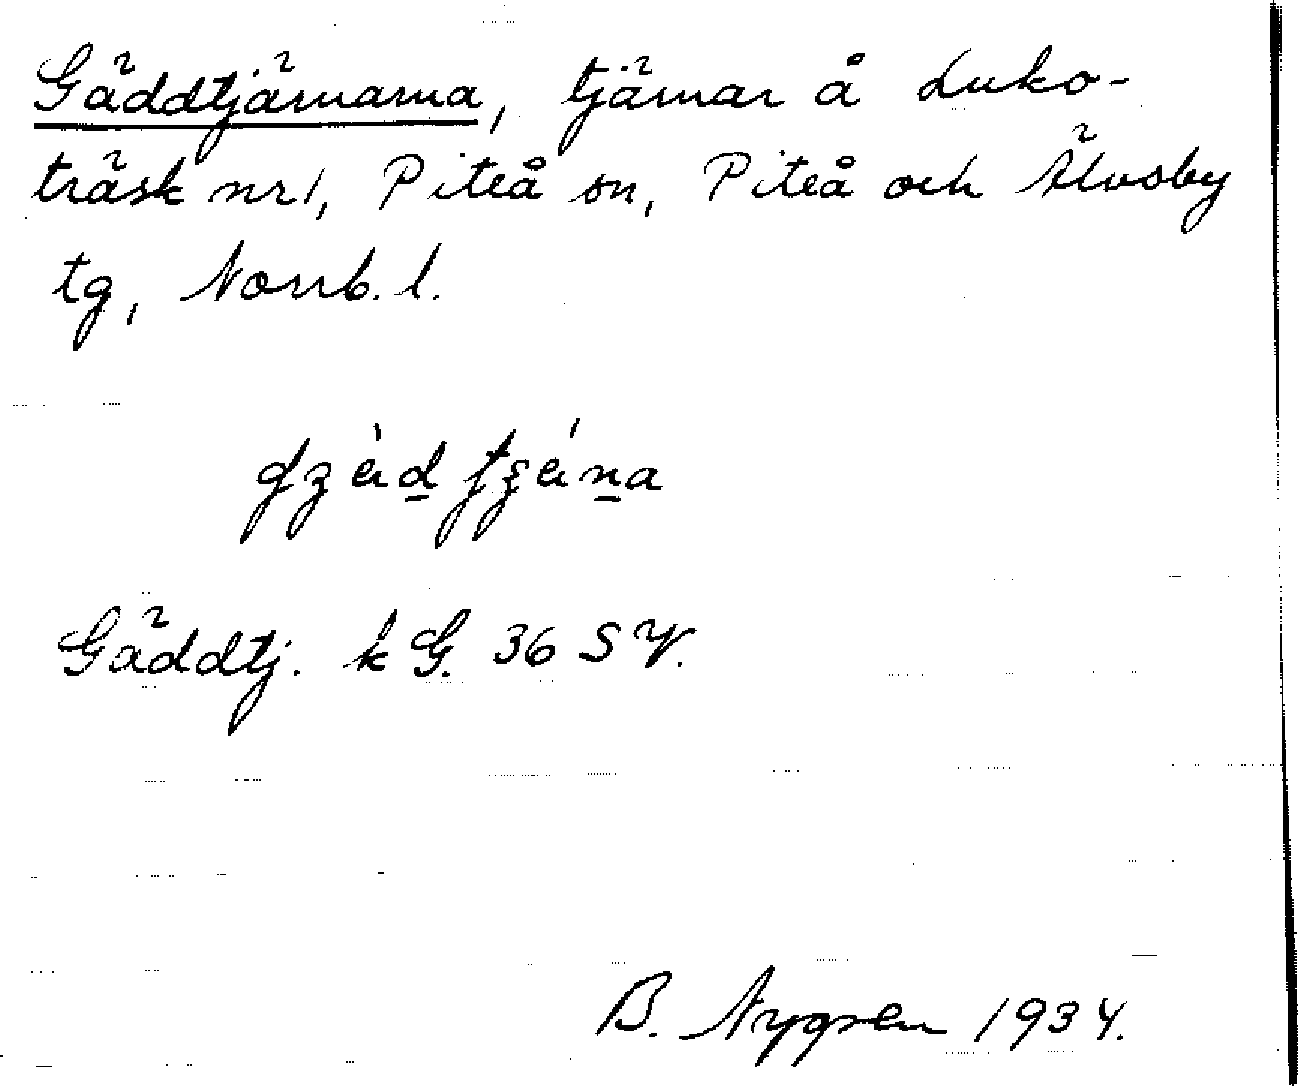 Gäddtjärnarna, tjärnar å Luko-
träsk nr 1, Piteå sn, Piteå och Älvsby
tg, Norrb. l.
Gäddtj. kG. 36 SV.
B. Nygren 1934.